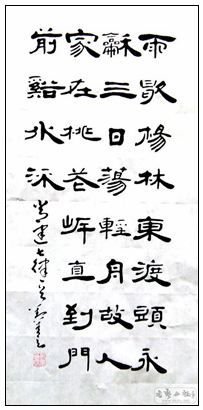 雨歇楊林東渡頭永
龢三日蕩輕舟故人
家在桃花岸直到門
前谿水流
常建七律